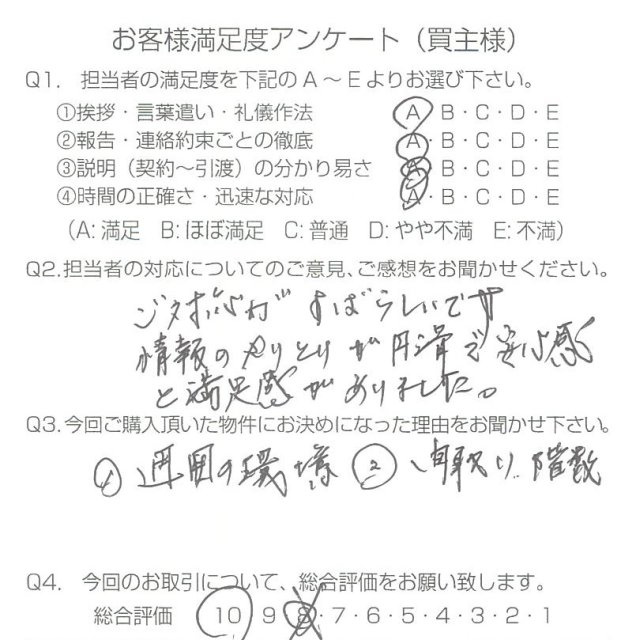 お客様満足度アンケート（買主様）
Q1. 担当者の満足度を下記のA～Eよりお選び下さい。
①挨拶・言葉遣い・礼儀作法 A・B・C・D・E
②報告・連絡約束ごとの徹底 A・B・C・D・E
③説明（契約～引渡）の分かり易さ A・B・C・D・E
④時間の正確さ・迅速な対応 A・B・C・D・E
（A:満足 B:ほぼ満足 C:普通 D:やや不満 E:不満）
Q2.担当者の対応についてのご意見、ご感想をお聞かせください。
ご対応がすばらしいです
情報のやりとりが円滑で安心感
と満足感がありました。
Q3.今回ご購入頂いた物件にお決めになった理由をお聞かせ下さい。
① 周囲の環境 ② 間取り 階数
Q4. 今回のお取引について、総合評価をお願い致します。
総合評価 10 9 8・7・6・5・4・3・2・1